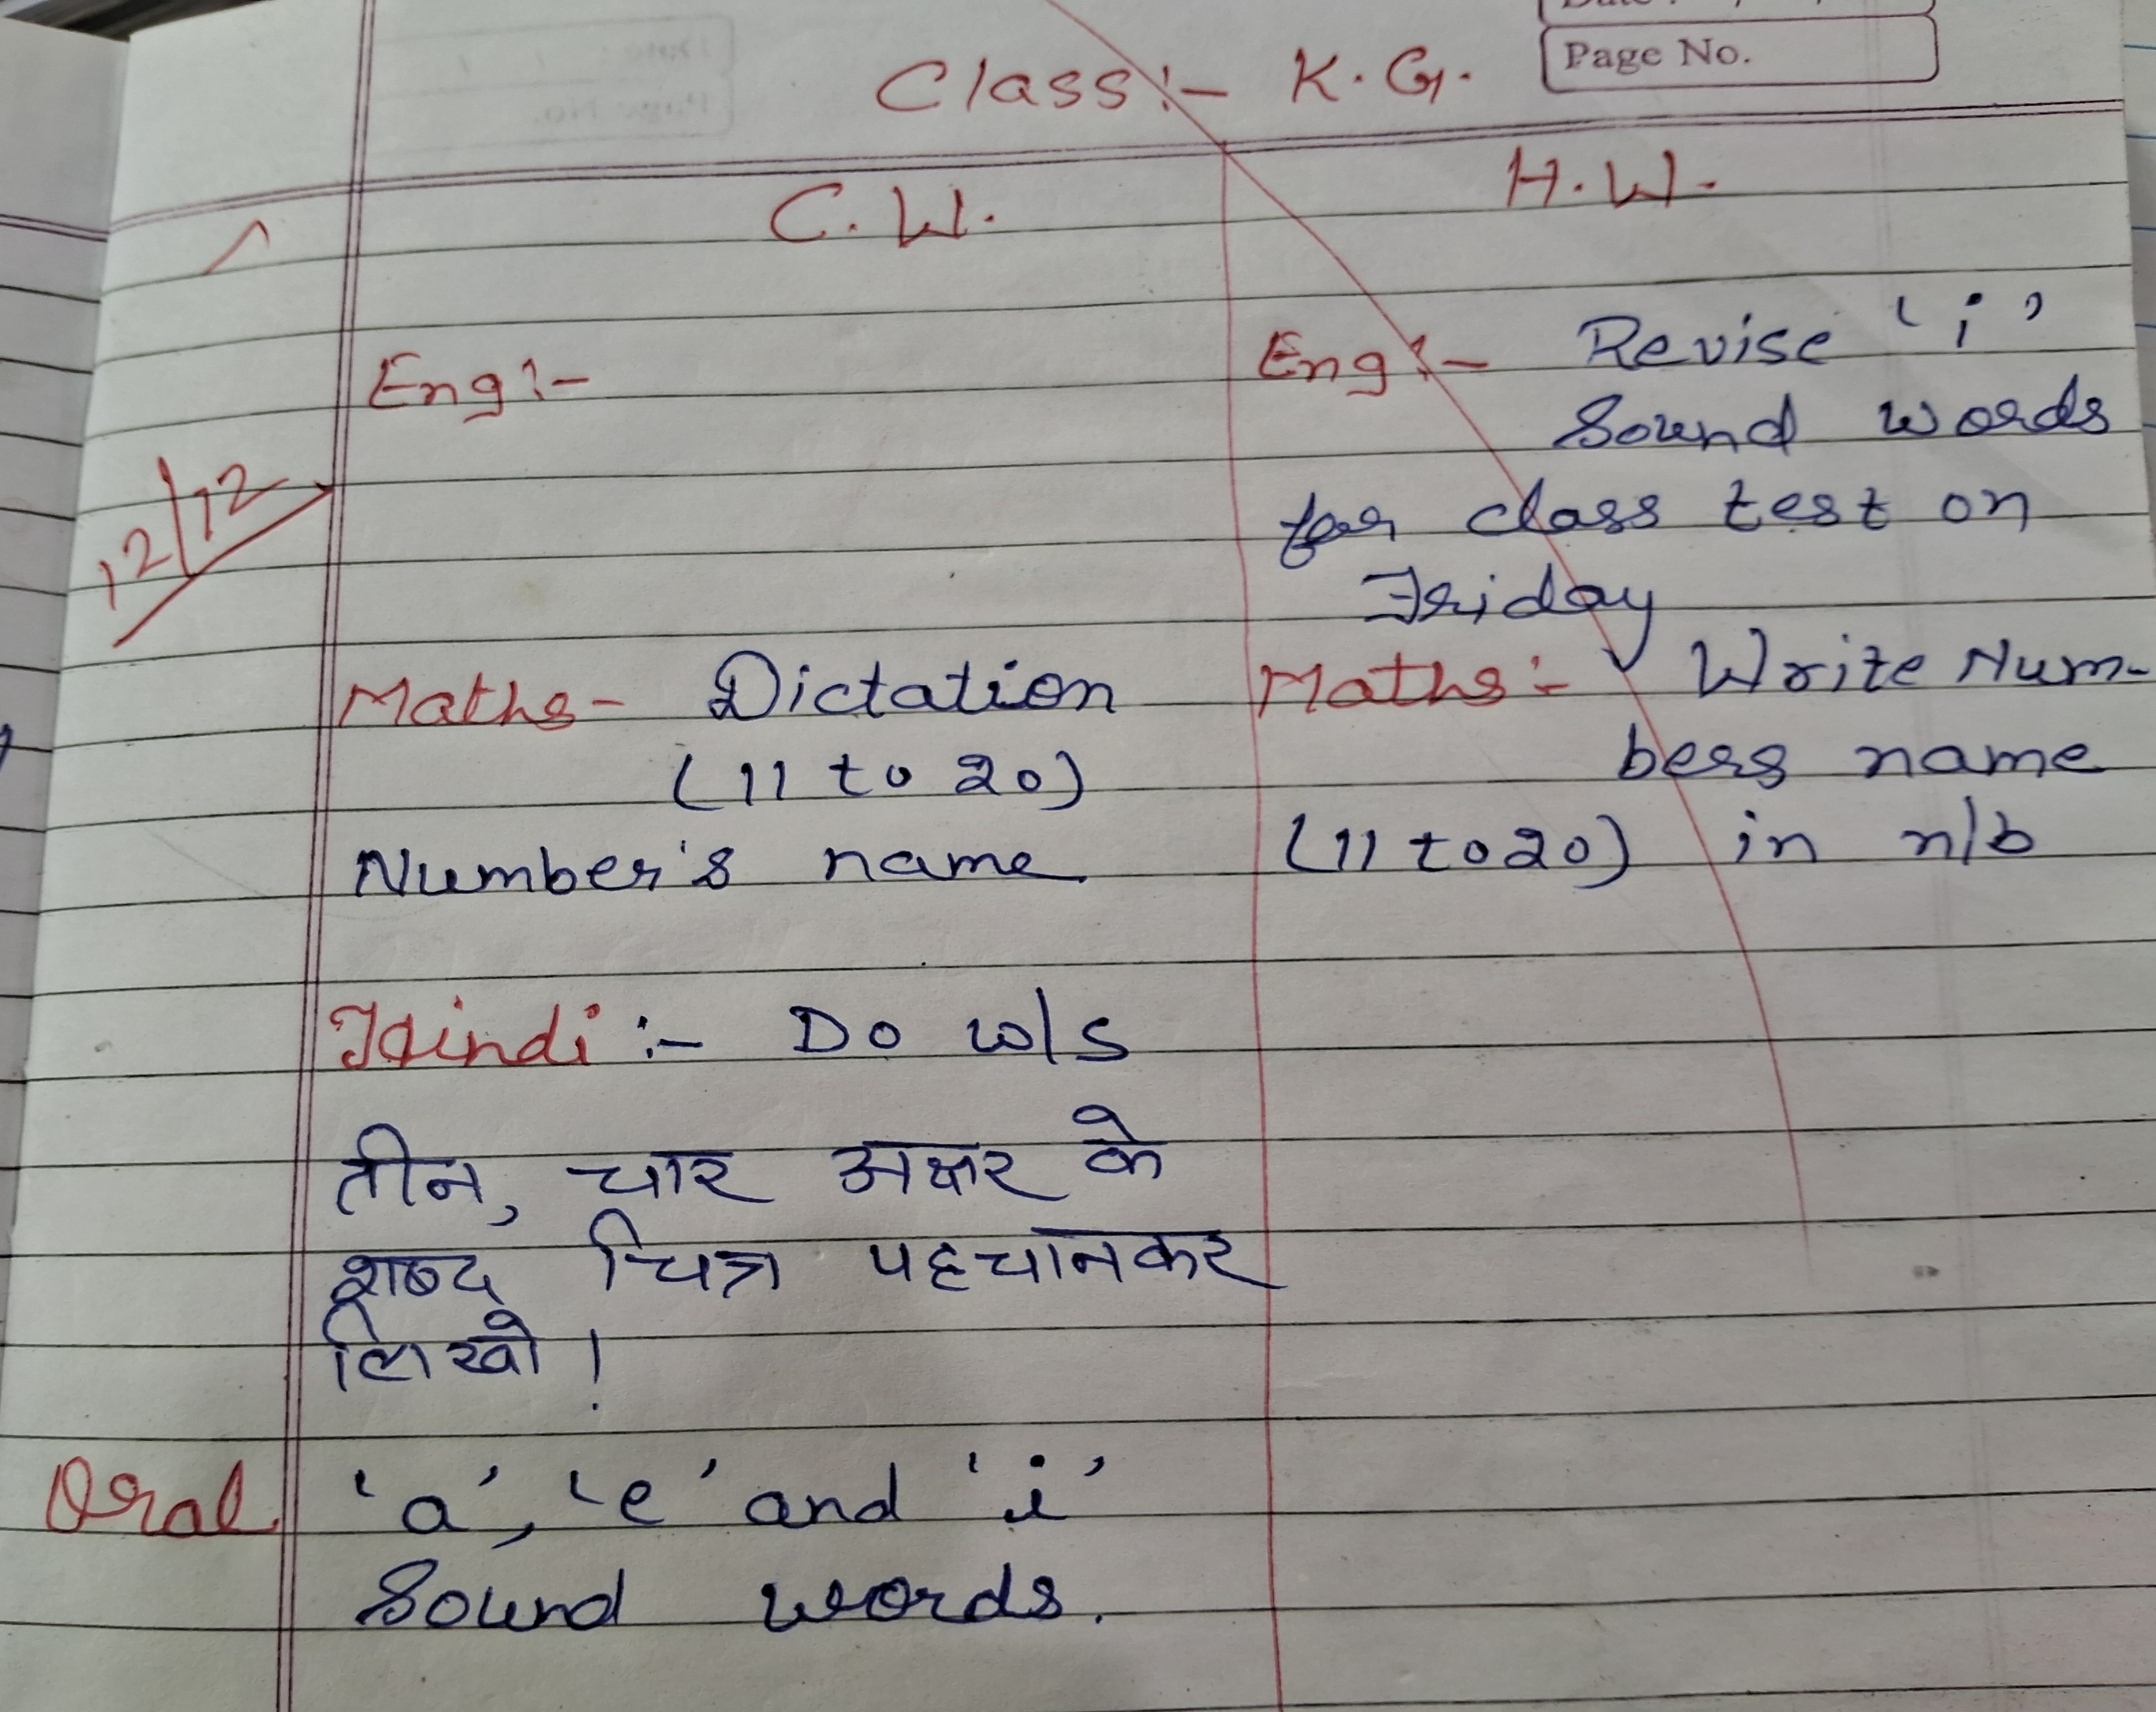 Page No.
Class:- K.G.
C.W.
H.W.
12/12
Eng:-
Maths- Dictation
(11 to 20)
Number's name
Hindi :- Do w/s
तीन, चार अक्षर के
शब्द चित्र पहचानकर
लिखो !
Oral 'a', 'e' and 'i'
Sound words.
Eng:- Revise 'i'
Sound words
for class test on
Friday
Maths:- Write Num-
bers name
(11 to 20) in n/b